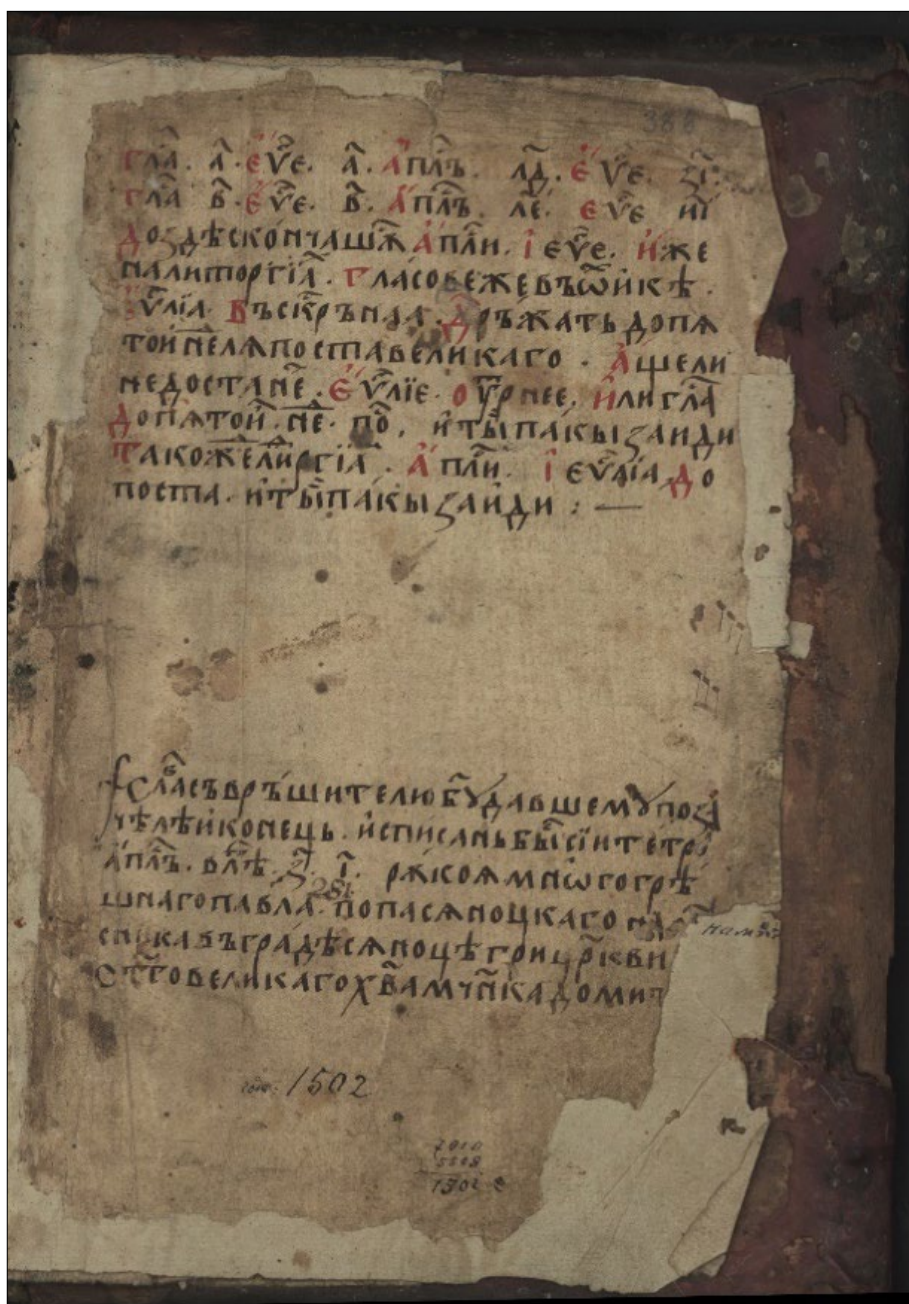 388
гла҃. а҃. є҆ѵⷢ҇е. а҃. А҆пⷭ҇лъ. лд҃. є҆ѵⷢ҇е. зі҃.
гла҃ в҃. є҆ѵⷢ҇е. в҃. А҆пⷭ҇лъ. ле҃. еѵⷢ҇е иі҃
дозⷣѣсконьчашѧ҃ А҆пⷭ҇ли. і҆ еѵⷢ҇е. и҆же
налиторгіа҃. гласовежевъѿи҆кѣ.
іѵ҃ліа. въскр҃ън҃аа. дръжать допѧ
тои҆ н҃елѧпоставеликаго. а҆щели
недостане҃. є҆ѵⷢ҇ліе. оу҆тр҃нее. и҆лигла҃
допѧтои҆. не҃. по҃. и҆тꙑ҃пакызаиди
такожели҃ргіа҃. А҆пⷭ҇ли. і҆ еѵⷢ҇ліа до
поста. и҆тꙑ҃пакызаиди : —
слⷡ҇асъвръшителюб҃ѹдавшемѹпоза
чѧлѣи҆конець. и҆списаньбы҃сїитетрⷪ҇
а҆пⷭ҇лъ. влⷮ҇ѣ. ҂з҃. і҃. рѫкоѧмнѡгогрѣ
шнагопавла. попасѧноцкаго
сникавъградѣсѧноцѣприцр҃кви
ст҃говеликагох҃вамч҃нка
1502
7010
5508
1502